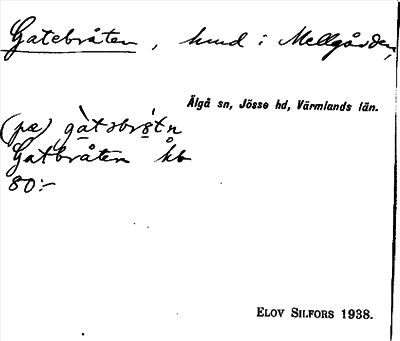 Gatebråten, hmd i Mellgården,
Älgå sn, Jösse hd, Värmlands län.
(pæ) gàtəbrǫ́tn
Gatbråten kb
80:-
ELOV SILFORS 1938.